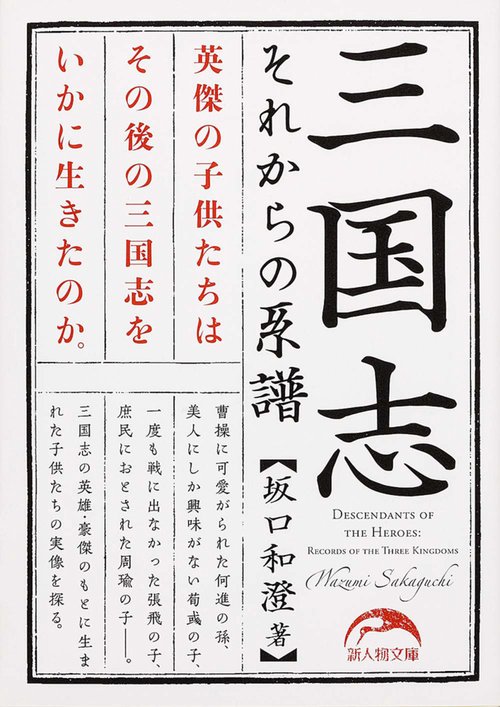 三国志
それからの系譜
【坂口和澄 著】
DESCENDANTS OF
THE HEROES:
RECORDS OF THE THREE KINGDOMS
Wazumi Sakaguchi
新人物文庫
英傑の子供たちは
その後の三国志を
いかに生きたのか。
曹操に可愛がられた何進の孫、
美人にしか興味がない荀彧の子、
一度も戦に出なかった張飛の子、
庶民におとされた周瑜の子──。
三国志の英雄・豪傑のもとに生ま
れた子供たちの実像を探る。